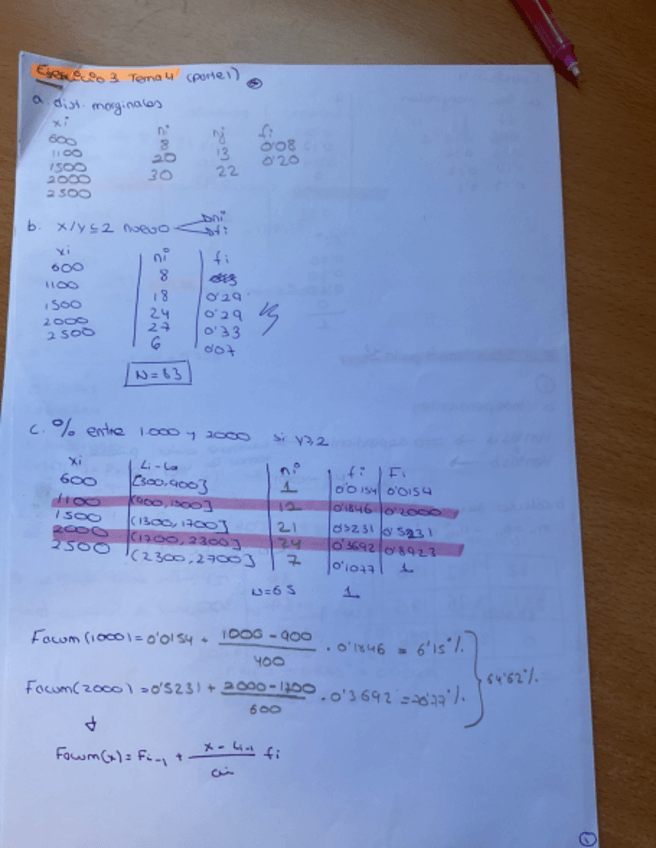 Ejercicio 3 Tema 4 (parte 1)
a. dist. marginales
xi ni nj fi
600 8 13 0'08
1100 20 22 0'20
1500 30
2000
2500
b. X/Y≤2 nuevo ni fi
xi ni fi
600 8
1100 18 0'29
1500 24 0'29
2000 27 0'33
2500 6 0'07
N=83
c. % entre 1000 y 2000 si Y≥2
xi Li-Lo ni fi Fi
600 [300,900] 1 0'0154 0'0154
1100 (900,1300] 12 0'1846 0'2000
1500 (1300,1700] 21 0'3231 0'5231
2000 (1700,2300] 24 0'3692 0'8923
2500 (2300,2700] 7 0'1077 1
N=65 1
Facum(1000)=0'0154 + 1000-900 / 400 . 0'1846 = 6'15%
Facum(2000)=0'5231 + 2000-1700 / 600 . 0'3692 = 70'77%
64'62%
Facum(x)=Fi-1 + x-Li-1 / ai fi
1